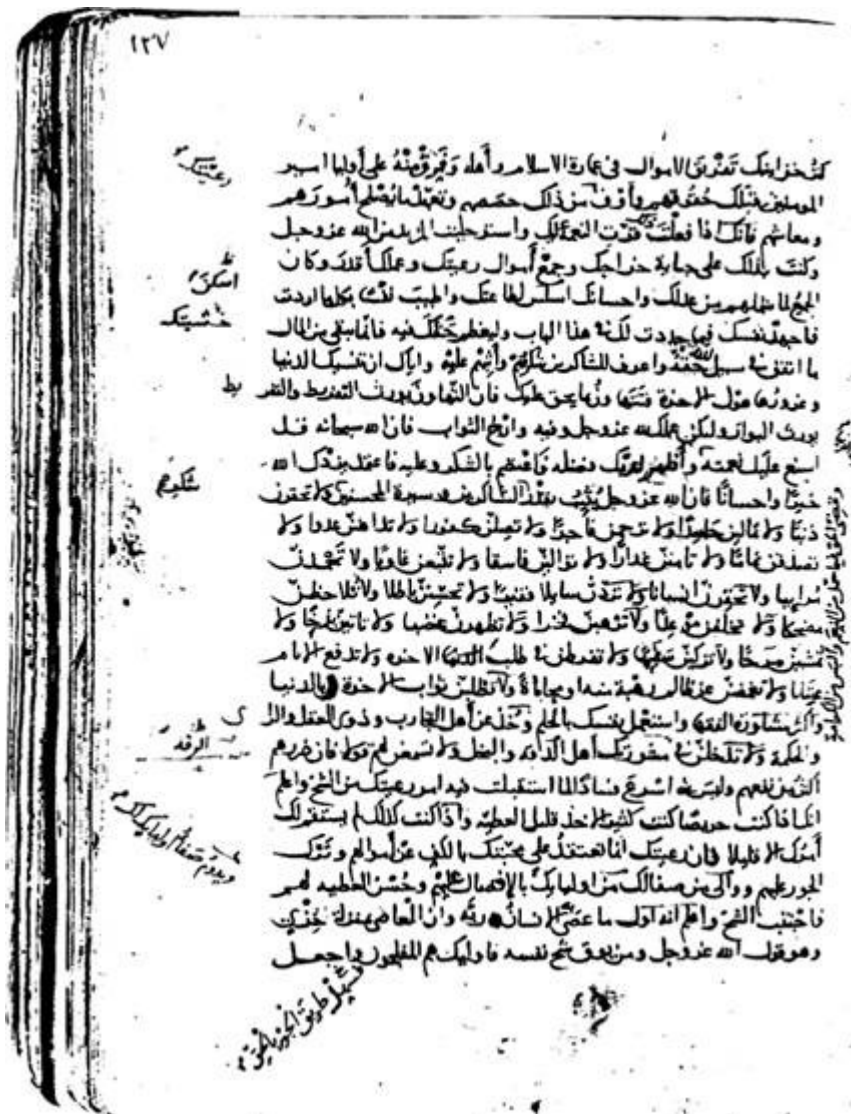 ١٢٧
كنز خزاينك تفريق الاموال فى عمارة الاسلام وأهله وَفَرِّق مِنْهُ على أوليا امير
ورعيتك
المومنين قبلك حقوقهم وأَوْف من ذلك حصصهم وتعهّد ما يُصلح أُمورَهم
ومعاشهم فانك اذا فعلت ذلك قرّت النعمة لك واستوجبت المزيد من الله عز وجل
وكنت بذلك على جباية خراجك وجمع أموال رعيتك وعملك أقدر وكان
الجمع لما شملهم من عدلك واحسانك اسلس لطاعتك واطيب نفسا بكل ما اردت
اسكن
فاجهد نفسك فيما حددت لك فى هذا الباب وليعظم حقك فيه فانما يبقى من المال
خشيتك
ما انفق فى سبيل الله حقه واعرف للشاكرين شكرهم وأَثِبْهم عليه واياك ان تنسيك الدنيا
وغرورها هول الاخرة فتتهاون بما يحق عليك فان التهاون يورث التفريط والتفر
يط
يورث البوار وليكن عملك لله عز وجل وفيه وارج الثواب فان الله سبحانه قد
اسبغ عليك نعمته وأظهر لديك فضله فاعتصم بالشكر وعليه فاعتمد يزدك الله
خيرًا واحسانًا فان الله عز وجل يُثيب بقدر الشاكرين وسيرة المحسنين ولا تحقرن
شكر
ذنبًا ولا تمالين حاسدًا ولا ترحمن فاجرًا ولا تصلن كفورا ولا تداهنن عدوا ولا
تصدقن نمامًا ولا تامنن غدارًا ولا توالين فاسقا ولا تتبعن غاويًا ولا تحمدن
مرايبا ولا تحقرن انسانا ولا تردّن سايلا فقيرًا ولا تحسنن باطلا ولا تلاحظن
مضحكا ولا تخلفن موعدًا ولا ترهبن فخرا ولا تظهرن غضبا ولا تاتين بذخًا ولا
تمشين مرحًا ولا تزكين سفيها ولا تفرطن فى طلب الاخره ولا تدفع الايام
عتابا ولا تغمضن عن ظالم رهبة منه او محاباة ولا تطلبن ثواب الاخرة بالدنيا
وأكثر مشاورة الفقها واستعمل نفسك بالحلم وخذ عن أهل التجارب وذوى العقل والرا
ى
والحكمة ولا تدخلن فى مشورتك أهل الدقه والبخل ولا تسمعن لهم قولا فان ضررهم
الرفه
اكثر من نفعهم وليس شى اسرع فسادًا لما استقبلت فيه امر رعيتك من الشح واعلم
انك اذا كنت حريصًا كنت كثير الاخذ قليل العطيه واذا كنت كذلك لم يستقم لك
أمرك الا قليلا فان رعيتك انما تعتقد على محبتك بالكف عن أموالهم وتَرْك
الجور عليهم ووالى من صفا لك من اوليايك بالافضال عليهم وحُسْن العطيه لهم
ويدوم صفاء اوليايك لك
فاجتنب الشح واعلم انه اول ما عصى به الانسان ربّه وان العاصى بمنزلة خِزْىٍ
وهو قول الله عز وجل ومن يوق شح نفسه فاوليك هم المفلحون واجعل
فسهل طريق الجود بالحق